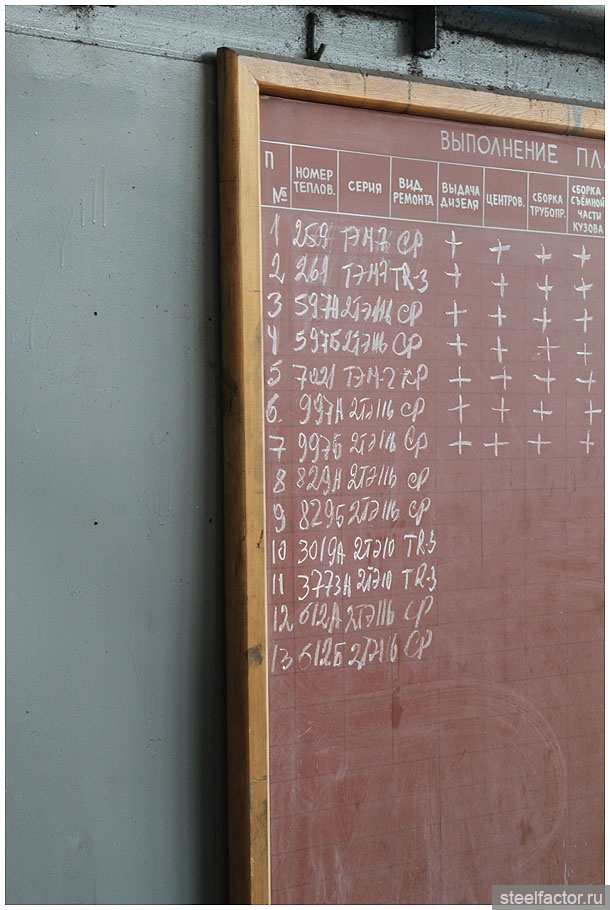 ВЫПОЛНЕНИЕ ПЛ
П № НОМЕР ТЕПЛОВ. СЕРИЯ ВИД. РЕМОНТА ВЫДАЧА ДИЗЕЛЯ ЦЕНТРОВ. СБОРКА ТРУБОПР. СБОРКА СЪЁМНОЙ ЧАСТИ КУЗОВА
1 259 ТЭМ2 СР + + + +
2 261 ТЭМ2 TR-3 + + + +
3 597А 2ТЭ116 СР + + + +
4 597Б 2ТЭ116 СР + + + +
5 7021 ТЭМ-2 КР + + + +
6. 997А 2ТЭ116 СР + + + +
7 997Б 2ТЭ116 СР + + + +
8 829А 2ТЭ116 СР
9 829Б 2ТЭ116 СР
10 3019А 2ТЭ10 TR-3
11 3773А 2ТЭ10 TR-3
12 612А 2ТЭ116 СР
13 612Б 2ТЭ116 СР
steelfactor.ru